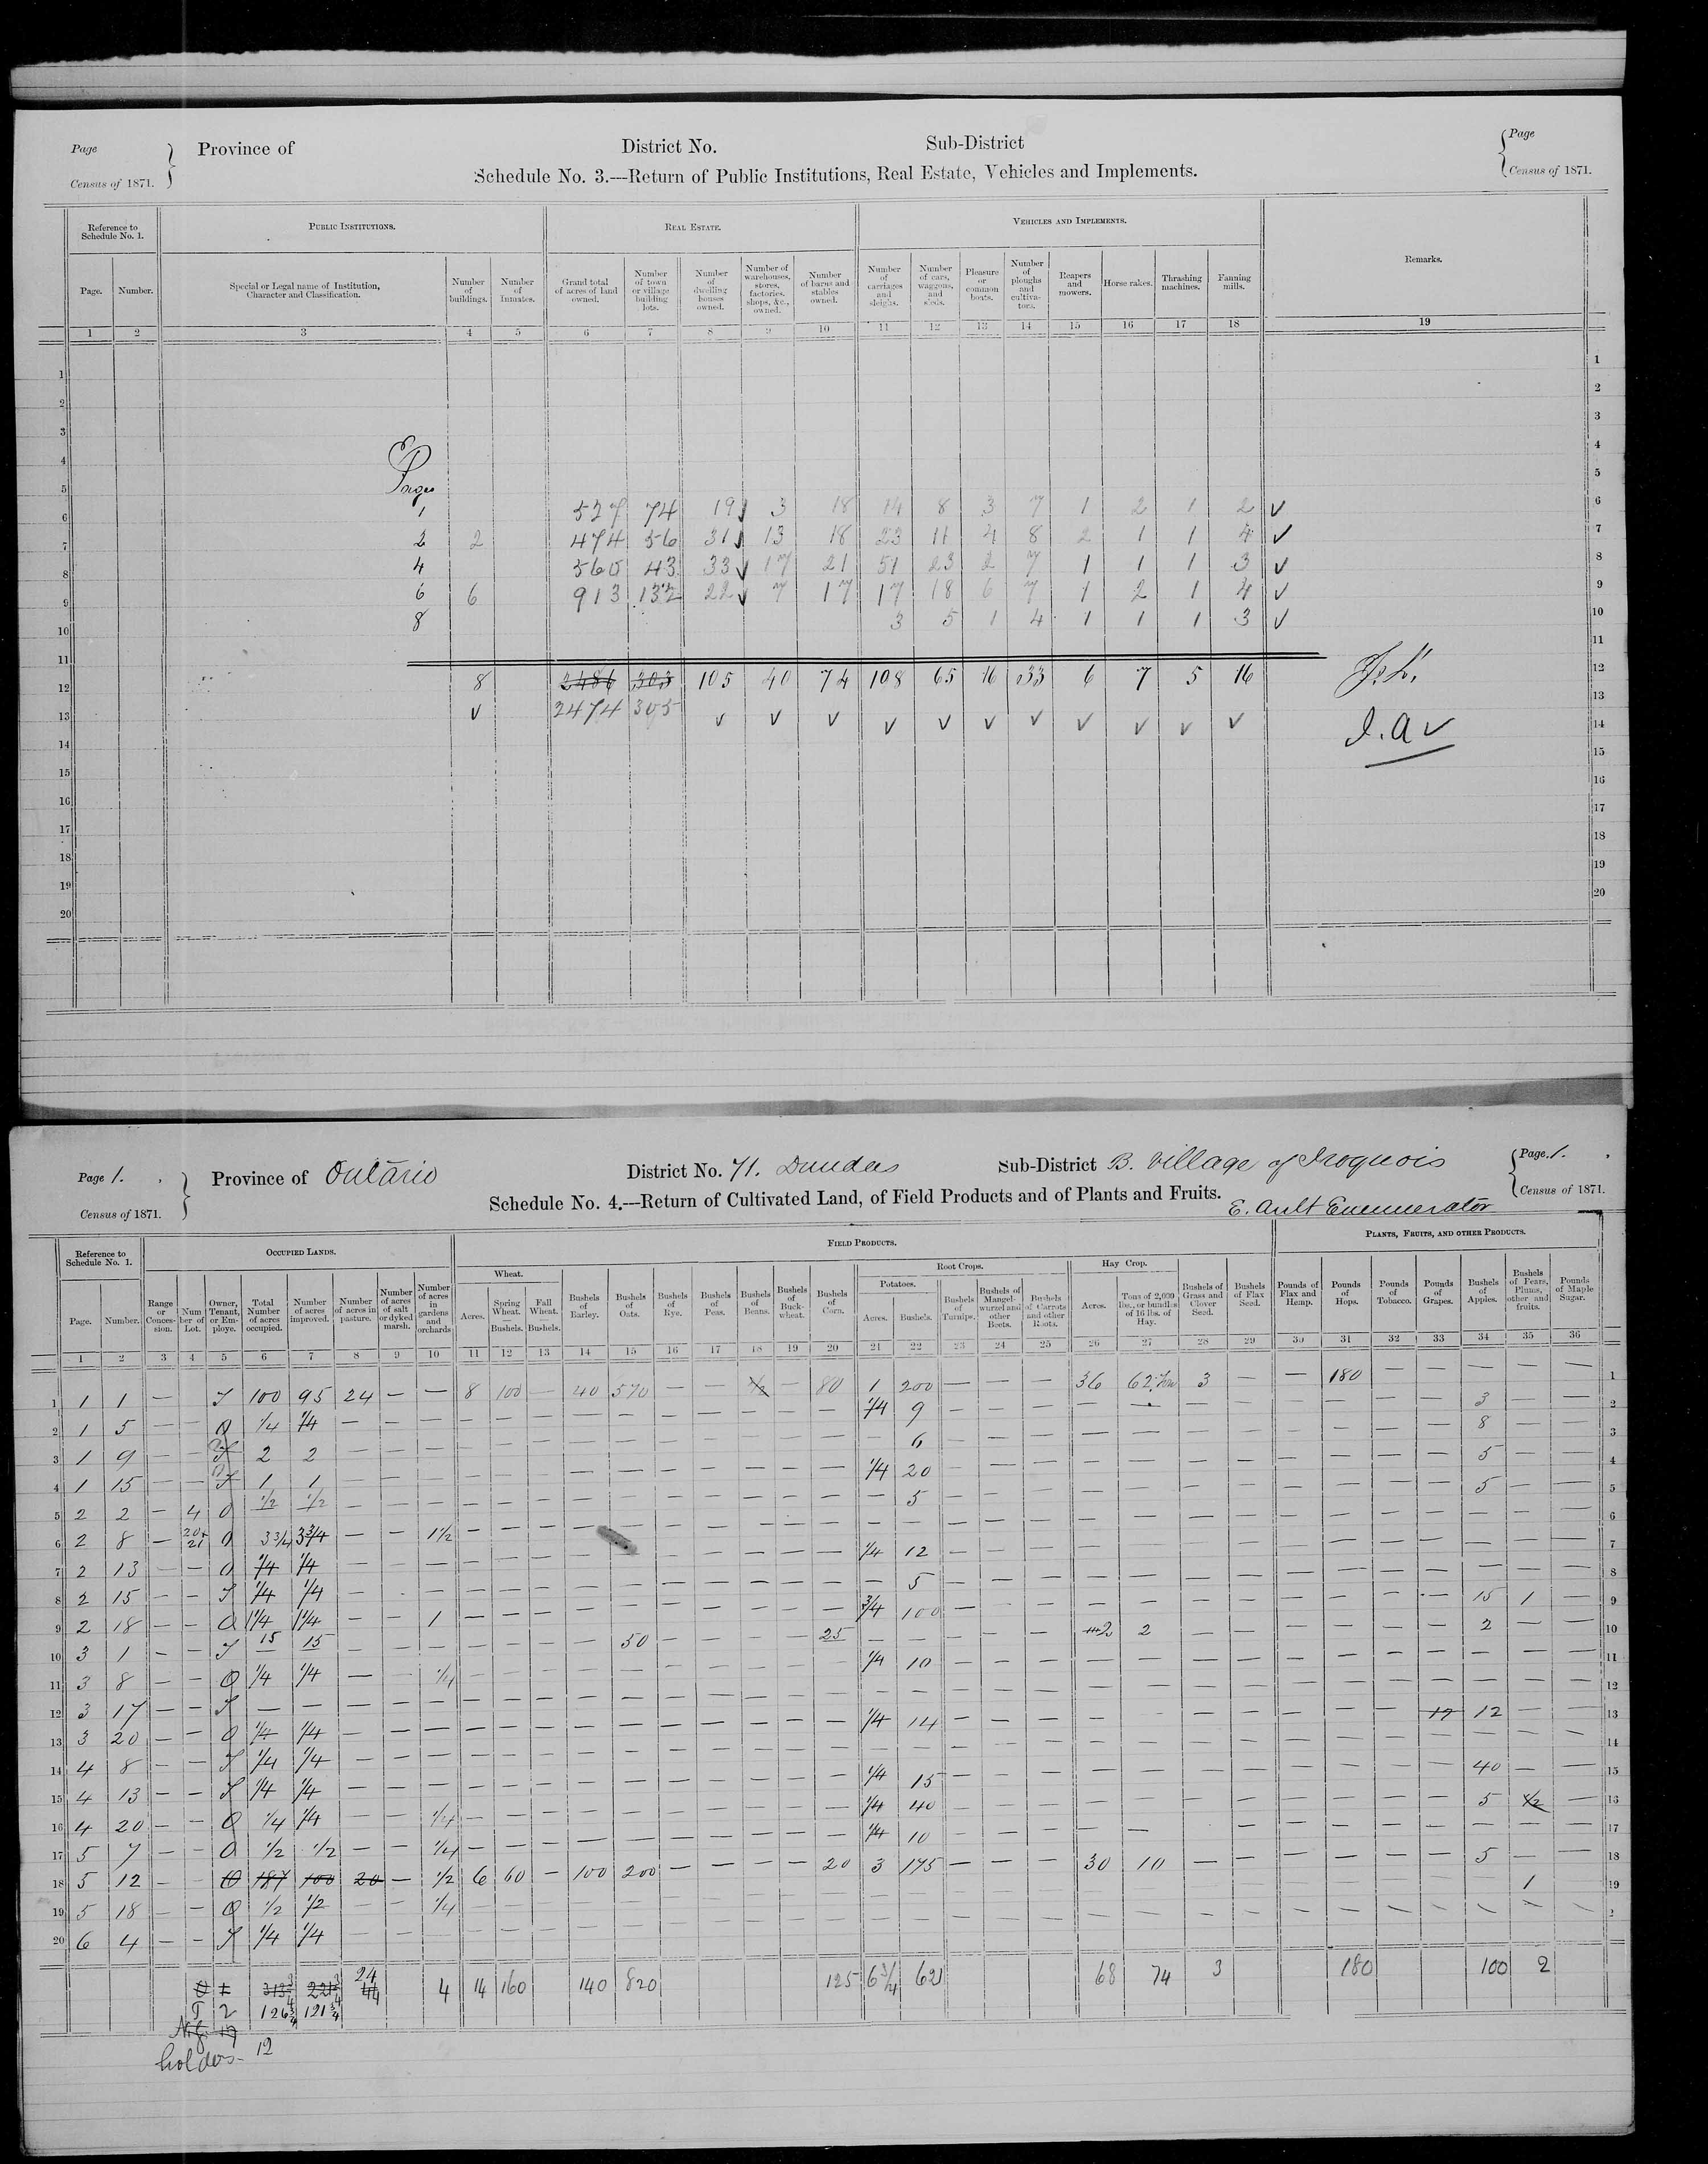 Page
Census of 1871.
Province of
District No.
Sub-District
Page
Census of 1871.
Schedule No. 3.—Return of Public Institutions, Real Estate, Vehicles and Implements.
Reference to Schedule No. 1. Public Institutions. Real Estate. Vehicles and Implements. Remarks.
Page. Number. Special or Legal name of Institution, Character and Classification. Number of buildings. Number of Inmates. Grand total of acres of land owned. Number of town or village building lots. Number of dwelling houses owned. Number of warehouses, stores, factories, shops, &c., owned. Number of barns and stables owned. Number of carriages and sleighs. Number of cars, waggons, and sleds. Pleasure or common boats. Number of ploughs and cultivators. Reapers and mowers. Horse rakes. Thrashing machines. Fanning mills.
1 2 3 4 5 6 7 8 9 10 11 12 13 14 15 16 17 18 19
Pages
1 527 74 19 3 18 14 8 3 7 1 2 1 2 ✓
2 2 474 56 31 13 18 23 11 4 8 2 1 1 4 ✓
4 560 43 33 17 21 51 23 2 7 1 1 1 3 ✓
6 6 913 132 22 7 17 17 18 6 7 1 2 1 4 ✓
8 3 5 1 4 1 1 1 3 ✓
8 2486 303 105 40 74 108 65 16 33 6 7 5 16
✓ 2474 305 ✓ ✓ ✓ ✓ ✓ ✓ ✓ ✓ ✓ ✓ ✓
Page 1.
Census of 1871.
Province of Ontario
District No. 71. Dundas
Sub-District B. Village of Iroquois
Page 1.
Census of 1871.
Schedule No. 4.—Return of Cultivated Land, of Field Products and of Plants and Fruits.
E. Ault Enumerator
Reference to Schedule No. 1. Occupied Lands. Field Products. Plants, Fruits, and other Products.
Wheat. Root Crops. Potatoes. Hay Crop.
Page. Number. Range or Concession. Number of Lot. Owner, Tenant, or Employe. Total Number of acres occupied. Number of acres improved. Number of acres in pasture. Number of acres of salt or dyked marsh. Number of acres in gardens and orchards Acres. Spring Wheat.—Bushels. Fall Wheat.—Bushels. Bushels of Barley. Bushels of Oats. Bushels of Rye. Bushels of Peas. Bushels of Beans. Bushels of Buckwheat. Bushels of Corn. Acres. Bushels. Bushels of Turnips. Bushels of Mangel-wurzel and other Beets. Bushels of Carrots and other Roots. Acres. Tons of 2,000 lbs., or bundles of 16 lbs. of Hay. Bushels of Grass and Clover Seed. Bushels of Flax Seed. Pounds of Flax and Hemp. Pounds of Hops. Pounds of Tobacco. Pounds of Grapes. Bushels of Apples. Bushels of Pears, Plums, other and fruits. Pounds of Maple Sugar.
1 2 3 4 5 6 7 8 9 10 11 12 13 14 15 16 17 18 19 20 21 22 23 24 25 26 27 28 29 30 31 32 33 34 35 36
1 1 1 — T 100 95 24 — — 8 100 — 40 570 — — ½ — 80 1 200 — — — 36 62 3 — — 180 — — — — —
2 1 5 — — O ¼ ¼ — ¼ 9 — 3 —
3 1 9 — — 2 2 — 6 — 8 —
4 1 15 — — 1 1 — ¼ 20 — 5 —
5 2 2 — 4 O ½ ½ — 5 — 5 —
6 2 8 — 20+21 O 3¾ 3¾ — — 1½ —
7 2 13 — — O ¼ ¼ — ¼ 12 —
8 2 15 — — T ¼ ¼ — 5 —
9 2 18 — — O 1¼ 1¼ — — 1 — ¾ 100 — 15 1 —
10 3 1 — — T 15 15 — 50 — 25 — 2 2 — 2 —
11 3 8 — — O ¼ ¼ — — ¼ — ¼ 10 —
12 3 17 — — T —
13 3 20 — — O ¼ ¼ — ¼ 14 — 12 12 —
14 4 8 — — T ¼ ¼ —
15 4 13 — — T ¼ ¼ — ¼ 15 — 40 —
16 4 20 — — O ¼ ¼ — — ¼ — ¼ 40 — 5 ½ —
17 5 7 — — O ½ ½ — — ¼ — ¼ 10 —
18 5 12 — — O 187 100 20 — ½ 6 60 — 100 200 — 20 3 175 — 30 10 — 5 —
19 5 18 — — O ½ ½ — — ¼ — 1
20 6 4 — — T ¼ ¼ —
24
44 4 14 160 140 820 125 6¾ 621 68 74 3 180 100 2
T 2 126¾ 121¾
holders 12